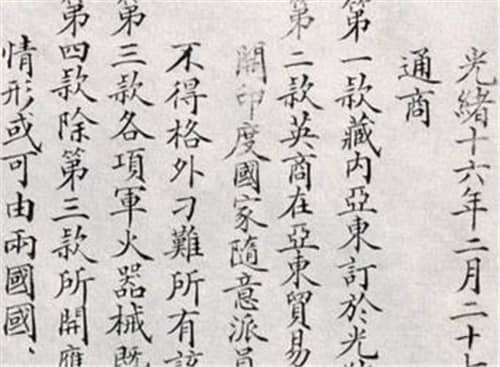 光緒十六年二月二十七
通商
第一款藏內亞東訂於光
第二款英商在亞東貿易
開印度國家隨意派員
不得格外刁難所有該
第三款各項軍火器械既
第四款除第三款所開應
情形或可由兩國國、